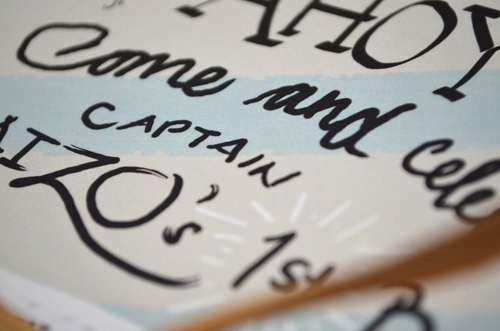 AHOY
Come and cele
CAPTAIN
IZO's 1st